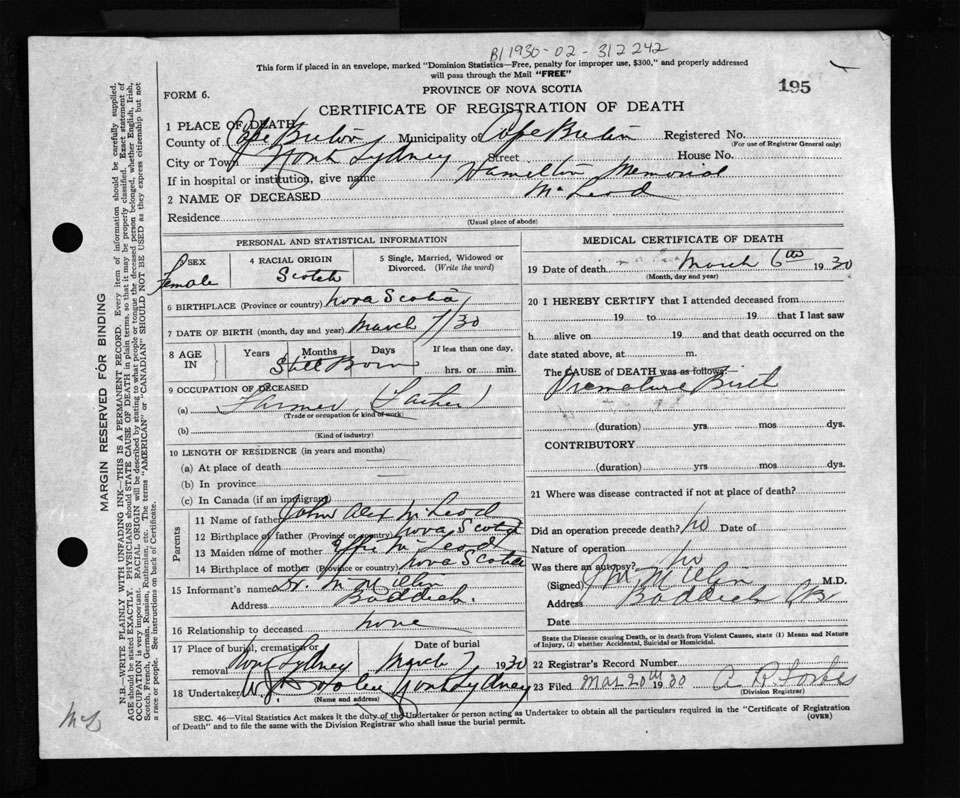 B1 1930-02-312242
This form if placed in an envelope, marked "Dominion Statistics—Free, penalty for improper use, $300," and properly addressed
will pass through the Mail "FREE"
PROVINCE OF NOVA SCOTIA
195
FORM 6.
CERTIFICATE OF REGISTRATION OF DEATH
1 PLACE OF DEATH
County of Cape Breton Municipality of Cape Breton Registered No.
(For use of Registrar General only)
City or Town North Sydney Street House No.
If in hospital or institution, give name Hamilton Memorial
2 NAME OF DECEASED McLeod
Residence
(Usual place of abode)
PERSONAL AND STATISTICAL INFORMATION
3 SEX Female
4 RACIAL ORIGIN Scotch
5 Single, Married, Widowed or Divorced. (Write the word)
6 BIRTHPLACE (Province or country) Nova Scotia
7 DATE OF BIRTH (month, day and year) March 7/30
8 AGE IN Years Months Days If less than one day, hrs. or min.
Still Born
9 OCCUPATION OF DECEASED
(a) Farmer (Father)
(Trade or occupation or kind of work)
(b)
(Kind of industry)
10 LENGTH OF RESIDENCE (in years and months)
(a) At place of death
(b) In province
(c) In Canada (if an immigrant)
Parents
11 Name of father John Alex McLeod
12 Birthplace of father (Province or country) Nova Scotia
13 Maiden name of mother Effie McLeod
14 Birthplace of mother (Province or country) Nova Scotia
15 Informant's name Dr. McMillan
Address Baddeck
16 Relationship to deceased none
17 Place of burial, cremation or removal North Sydney Date of burial March 7 1930
18 Undertaker North Sydney
(Name and address)
MEDICAL CERTIFICATE OF DEATH
19 Date of death March 6th 1930
(Month, day and year)
20 I HEREBY CERTIFY that I attended deceased from
19 to 19 that I last saw
h alive on 19 and that death occurred on the
date stated above, at m.
The CAUSE of DEATH was as follows:
Premature Birth
(duration) yrs mos dys.
CONTRIBUTORY
(duration) yrs. mos dys.
21 Where was disease contracted if not at place of death?
Did an operation precede death? no Date of
Nature of operation
Was there an autopsy? no
(Signed) McMillan M.D.
Address Baddeck CB
Date
State the Disease causing Death, or in death from Violent Causes, state (1) Means and Nature
of Injury, (2) whether Accidental, Suicidal or Homicidal.
22 Registrar's Record Number
23 Filed Mar 20th 1930 A R Forbes
(Division Registrar)
SEC. 46—Vital Statistics Act makes it the duty of the Undertaker or person acting as Undertaker to obtain all the particulars required in the "Certificate of Registration
of Death" and to file the same with the Division Registrar who shall issue the burial permit.
(OVER)
MARGIN RESERVED FOR BINDING
N.B.—WRITE PLAINLY WITH UNFADING INK—THIS IS A PERMANENT RECORD. Every item of information should be carefully supplied.
AGE should be stated EXACTLY. PHYSICIANS should STATE CAUSE OF DEATH in plain terms, so that it may be properly classified. Exact statement of
OCCUPATION is very important. RACIAL ORIGIN will be described by stating to what people or tongue the deceased person belonged, whether English, Irish,
Scotch, French, German, Russian, Ruthenian, etc. The terms "AMERICAN" or "CANADIAN" SHOULD NOT BE USED as they express citizenship but not
a race or people. See instructions on back of Certificate.